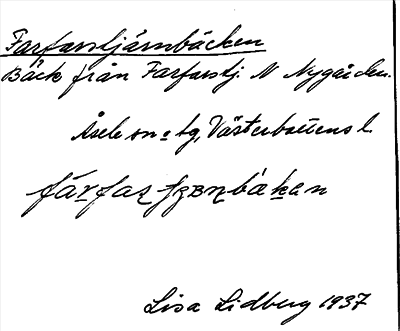 Farfarstjärnbäcken
Bäck från Farfarstj. N Nygården.
Åsele sn o tg, Västerbottens l.
Lisa Lidberg 1937